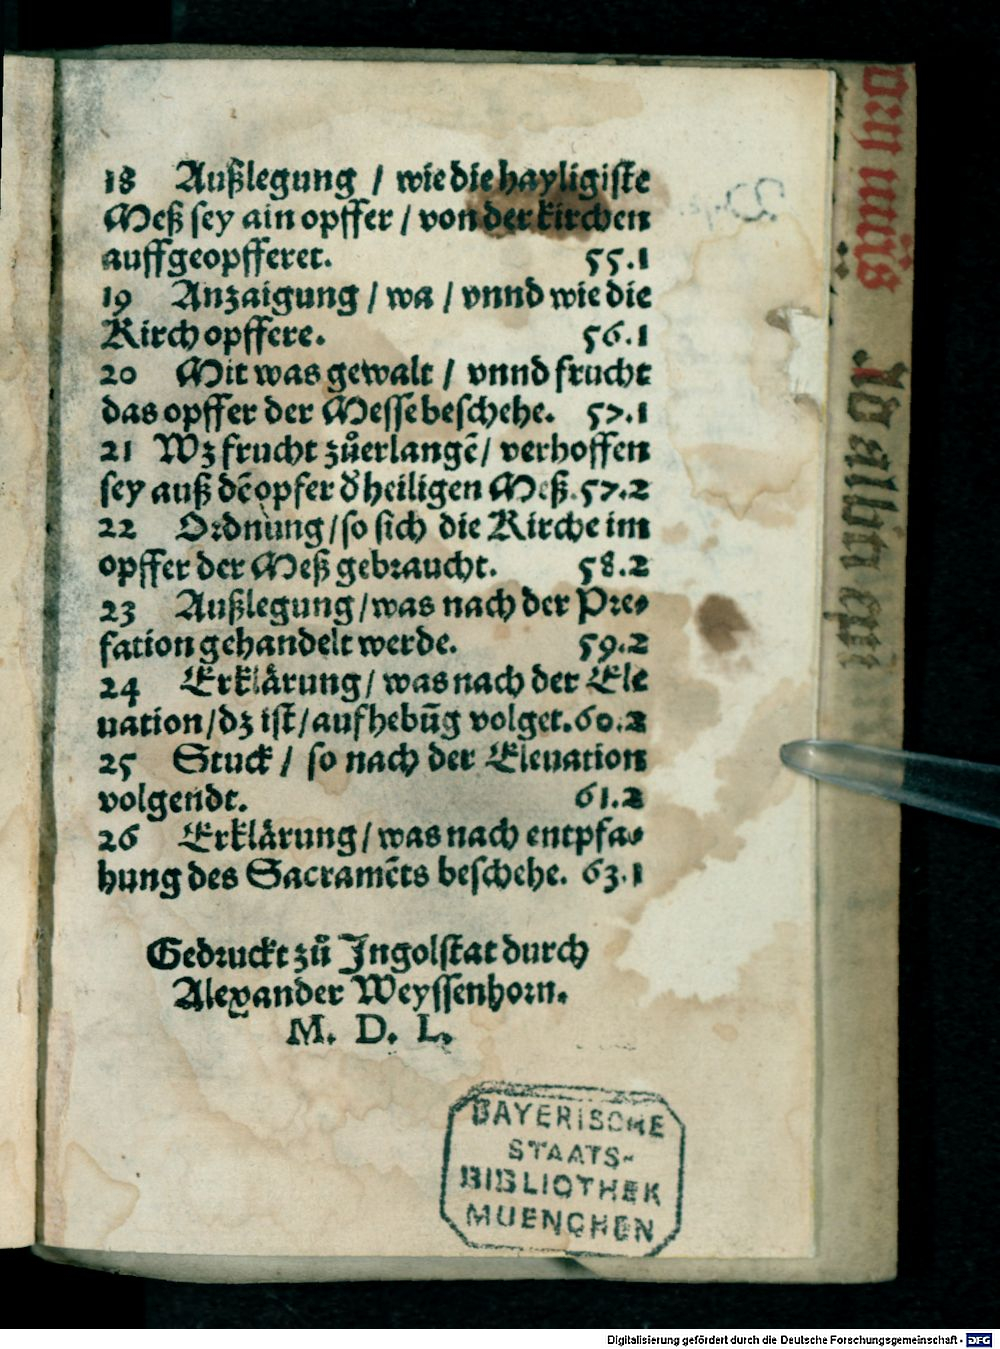 18 Außlegung / wie die hayligiste
Meß sey ain opffer / von der kirchen
auffgeopfferet. 55.1
19 Anzaigung / wa / vnnd wie die
Kirch opffere. 56.1
20 Mit was gewalt / vnnd frucht
das opffer der Messe beschehe. 57.1
21 Wz frucht zůerlangē / verhoffen
sey auß dē opfer d' heiligen Meß. 57.2
22 Ordnung / so sich die Kirche im
opffer der Meß gebraucht. 58.2
23 Außlegung / was nach der Pre⸗
fation gehandelt werde. 59.2
24 Erklärung / was nach der Ele
uation / dz ist / aufhebūg volget. 60.2
25 Stuck / so nach der Eleuation
volgendt. 61.2
26 Erklärung / was nach entpfa⸗
hung des Sacramēts beschehe. 63.1
Gedruckt zů Ingolstat durch
Alexander Weyssenhorn.
M. D. L.
BAYERISCHE
STAATS-
BIBLIOTHEK
MUENCHEN
Digitalisierung gefördert durch die Deutsche Forschungsgemeinschaft - DFG